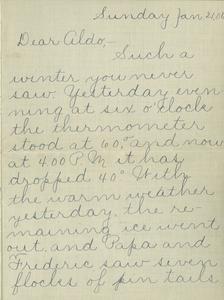 Sunday Jan 21,06
Dear Aldo,-
Such a
winter you never
saw. Yesterday even-
ning at six o'clock
the thermometer
stood at 60° and now
at 4.00 P.M. it has
dropped 40°. With
the warm weather
yesterday, the re-
maining ice went
out and Papa and
Frederic saw seven
flocks of pin tails